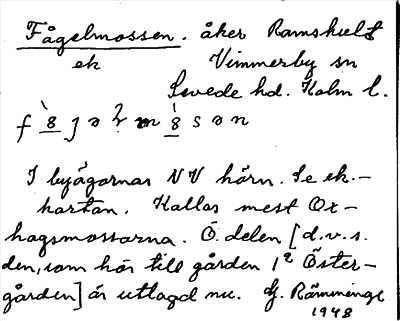 Fågelmossen. åker Ramshult
ek Vimmerby sn
Sevede hd. Kalm l.
I byägornas NV hörn. Se ek.-
kartan. Kallas mest Ox-
hagsmossarna. Ö. delen [d.v.s.
den, som hör till gården 1² Öster-
gården] är utlagd nu. Hj. Rämminge
1948